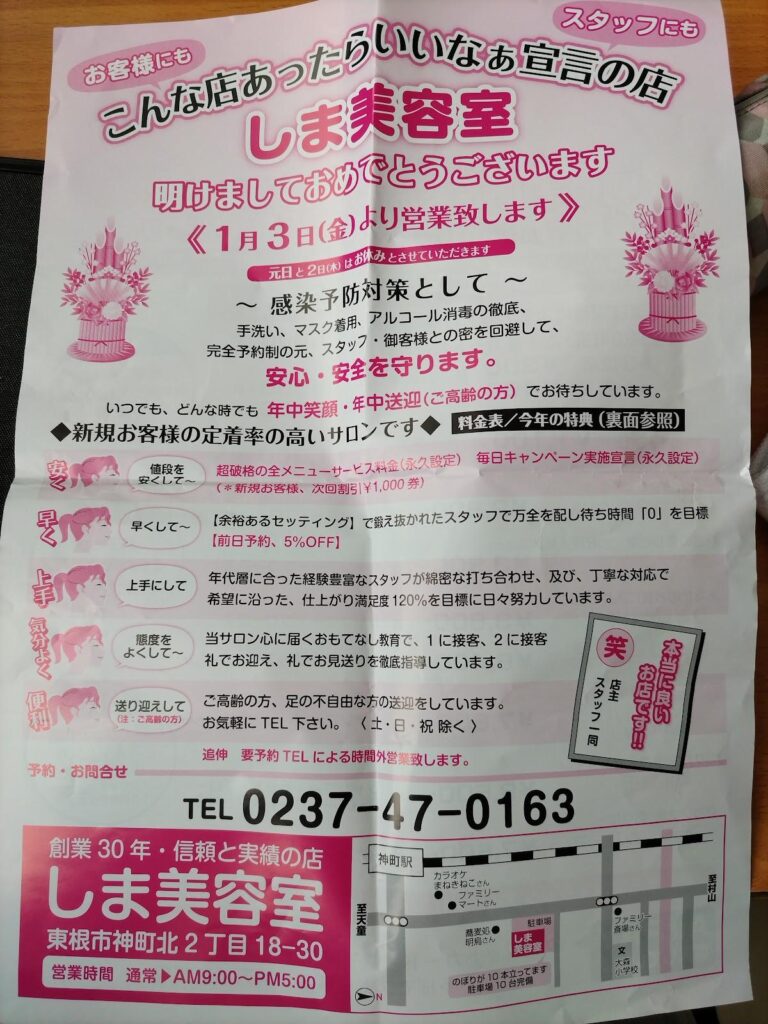 お客様にも
スタッフにも
こんな店あったらいいなぁ宣言の店
しま美容室
明けましておめでとうございます
《1月3日(金)より営業致します》
元日と2日(木)はお休みとさせていただきます
～ 感染予防対策として ～
手洗い、マスク着用、アルコール消毒の徹底、
完全予約制の元、スタッフ・御客様との密を回避して、
安心・安全を守ります。
いつでも、どんな時でも 年中笑顔・年中送迎(ご高齢の方) でお待ちしています。
◆新規お客様の定着率の高いサロンです◆ 料金表/今年の特典(裏面参照)
安く 値段を安くして～
超破格の全メニューサービス料金(永久設定) 毎日キャンペーン実施宣言(永久設定)
(*新規お客様、次回割引¥1,000券)
早く 早くして～
【余裕あるセッティング】で鍛え抜かれたスタッフで万全を配し待ち時間「0」を目標
【前日予約、5%OFF】
上手 上手にして
年代層に合った経験豊富なスタッフが綿密な打ち合わせ、及び、丁寧な対応で
希望に沿った、仕上がり満足度120%を目標に日々努力しています。
気分よく 態度をよくして～
当サロン心に届くおもてなし教育で、1に接客、2に接客
礼でお迎え、礼でお見送りを徹底指導しています。
便利 送り迎えして
(注:ご高齢の方)
ご高齢の方、足の不自由な方の送迎をしています。
お気軽にTEL下さい。〈土・日・祝 除く〉
本当に良い
お店です!!
笑
店主
スタッフ一同
追伸 要予約TELによる時間外営業致します。
予約・お問合せ
TEL 0237-47-0163
創業30年・信頼と実績の店
しま美容室
東根市神町北2丁目18-30
営業時間 通常▶AM9:00～PM5:00
神町駅
カラオケ
まねきねこさん
ファミリー
マートさん
至天童
至村山
蕎麦処
明烏さん
駐車場
しま
美容室
ファミリー
斎場さん
文
大森
小学校
のぼりが10本立ってます
駐車場10台完備
N